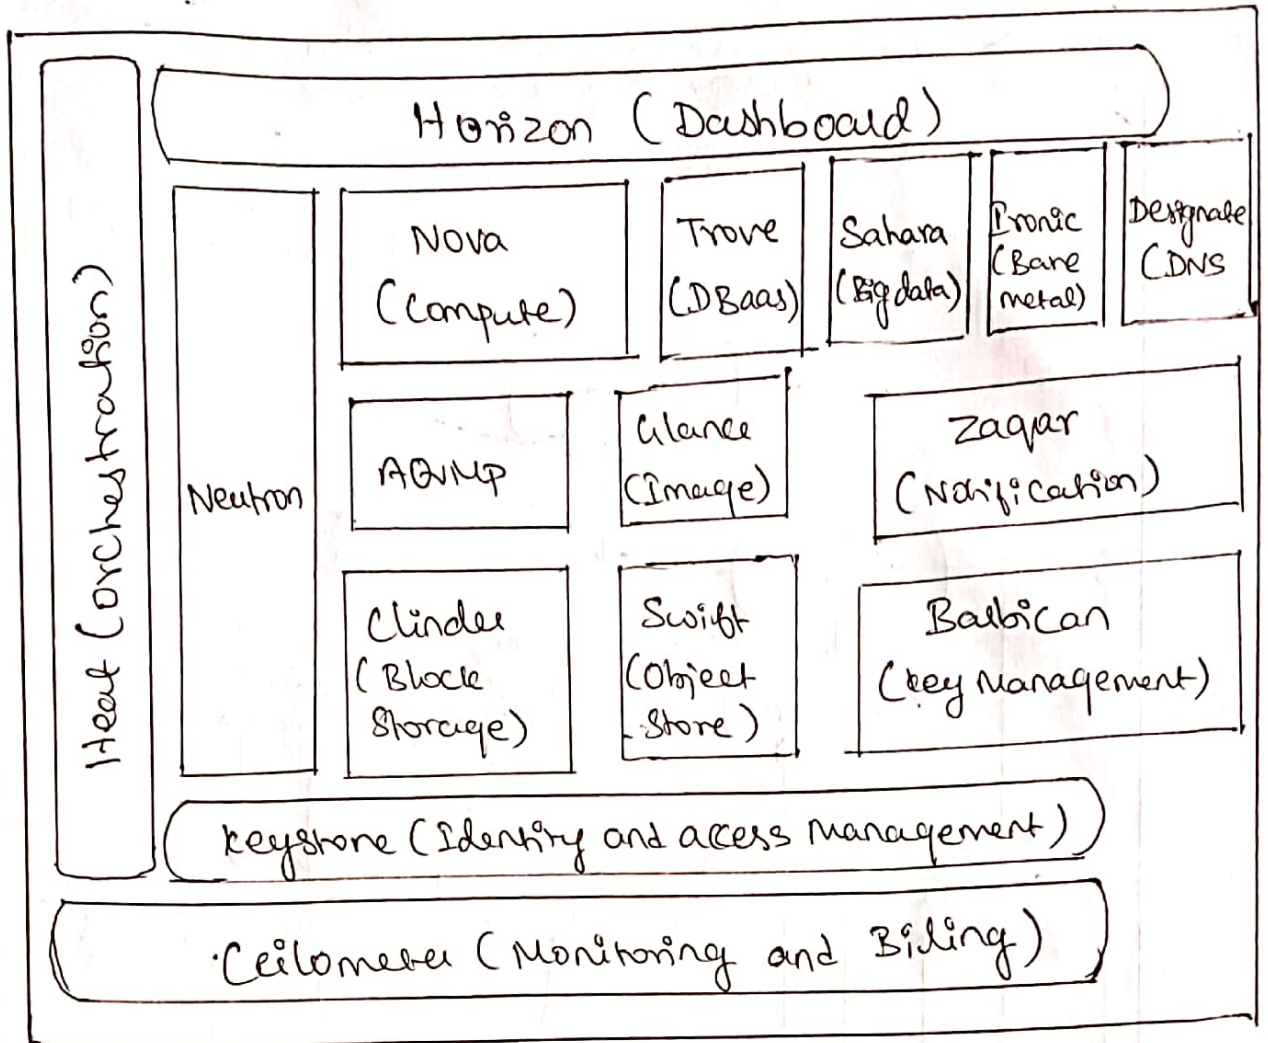 Horizon (Dashboard)
Heat (orchestration)
Neutron
Nova
(Compute)
Trove
(DBaas)
Sahara
(Big data)
Ironic
(Bare
metal)
Designate
(DNS
AQMP
Glance
(Image)
Zaqar
(Notification)
Clinder
(Block
Storage)
Swift
(Object
Store)
Barbican
(key Management)
keystone (Identity and access Management)
Ceilometer (Monitoring and Billing)